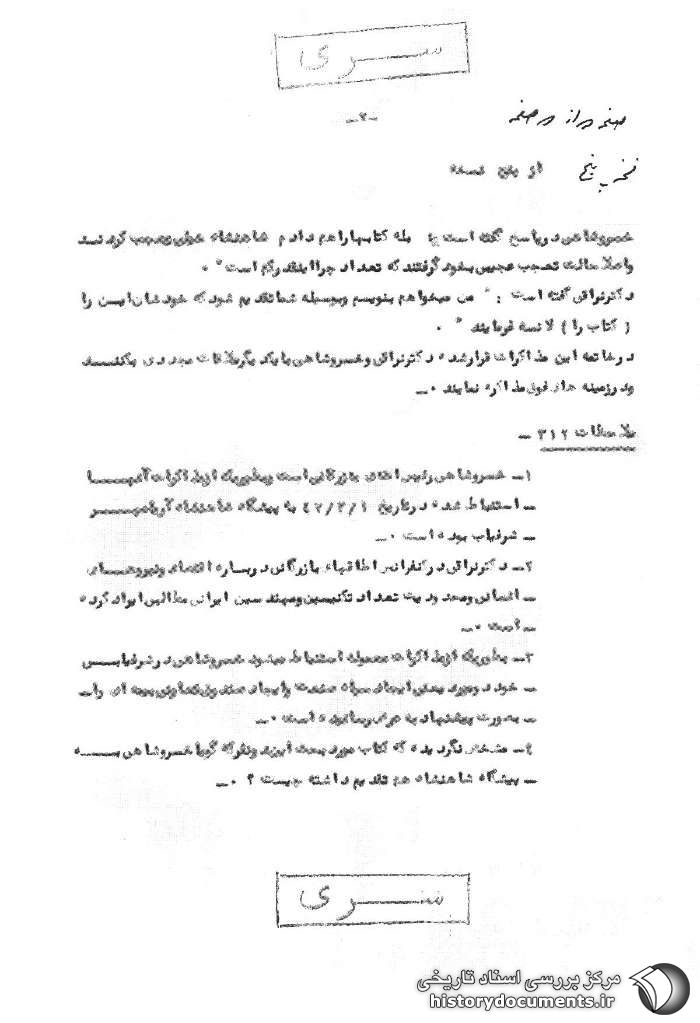 ســـری
صفحه دو از دو صفحه
-۲-
نسخه پنج
از پنج نسخه
خسروشاهی درپاسخ گفته است : بله کتابهاراهم دادم شاهنشاه خیلی تعجب کردند
واعلاحالت تعجب عجیبی بخود گرفتند که تعداد چرااینقدرکم است" ۰
دکترنراقی گفته است : " من میخواهم بنویسم وبوسیله شماتقدیم شود که خودشان این را
( کتاب را ) لانسه فرمایند " ۰
درخاتمه این مذاکرات قرارشده دکترنراقی وخسروشاهی بایکدیگرملاقات مجددی بکنند
ودرزمینه های فوق مذاکره نمایند ۰ــ
ملاحظات ۳۱۲ ــ
۱ــ خسروشاهی رئیس اطاق بازرگانی است وبطوریکه ازمذاکرات آنهـا
ــ استنباط شده درتاریخ ۴۲/۳/۱ به پیشگاه شاهنشاه آریامهـر
ــ شرفیاب بوده است ۰ــ
۲ــ دکترنراقی درکنفرانس اطاقهای بازرگانی درباره اقتصاد ونیروهـای
ــ انسانی ومحدودیت تعداد تکنیسین ومهندسین ایرانی مطالبی ایراد کرده
ــ است ۰ــ
۳ــ بطوریکه ازمذاکرات معموله استنباط میشود خسروشاهی درشرفیابـی
ــ خود درمورد ایجاد صنعت وایجاد صندوق تعاونی بیمه ای راــ
ــ بصورت پیشنهاد به عرض رسانیده است ۰ــ
۴ــ مشخص نگردیده که کتاب مورد بحث ایزید ونفرکه گویا خسروشاهی بـه
ــ پیشگاه شاهنشاه هم تقدیم داشته چیست ؟ ۰ــ
ســـری
مرکز بررسی اسناد تاریخی
historydocuments.ir